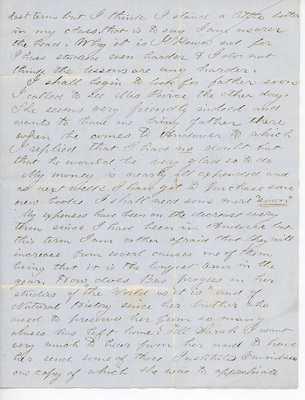 last term but I think I stand a little better
in my class, that is to say I am nearer
the head. Why it is I know not for
I have studied even harder & I do not
think the lessons are any harder.
I shall begin to look for father soon
I called to see Miss the other day.
She seems very friendly indeed and
wants to have me bring father there
when he comes to Andover to which
I replied that I had no doubt but
that he would be very glad so to do
My money is nearly all expended and
as next week I have got to purchase some
new books I shall need some more soon.
My expenses have been on the decrease every
term since I have been in Andover but
this term I am rather afraid that they will
increase from several causes one of them
being that it is the longest term in the
year. How does progress in her
studies of the Works and of
Natural History since her brother who
used to her from so many
abuses has left home? Tell Sarah I want
very much to hear from her and to have
her send some of those Institute
one copy of which she was to appropriate